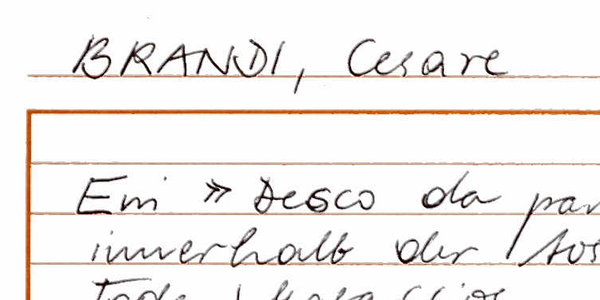 BRANDI, Cesare
Ein » Desco da par
innerhalb der Tos